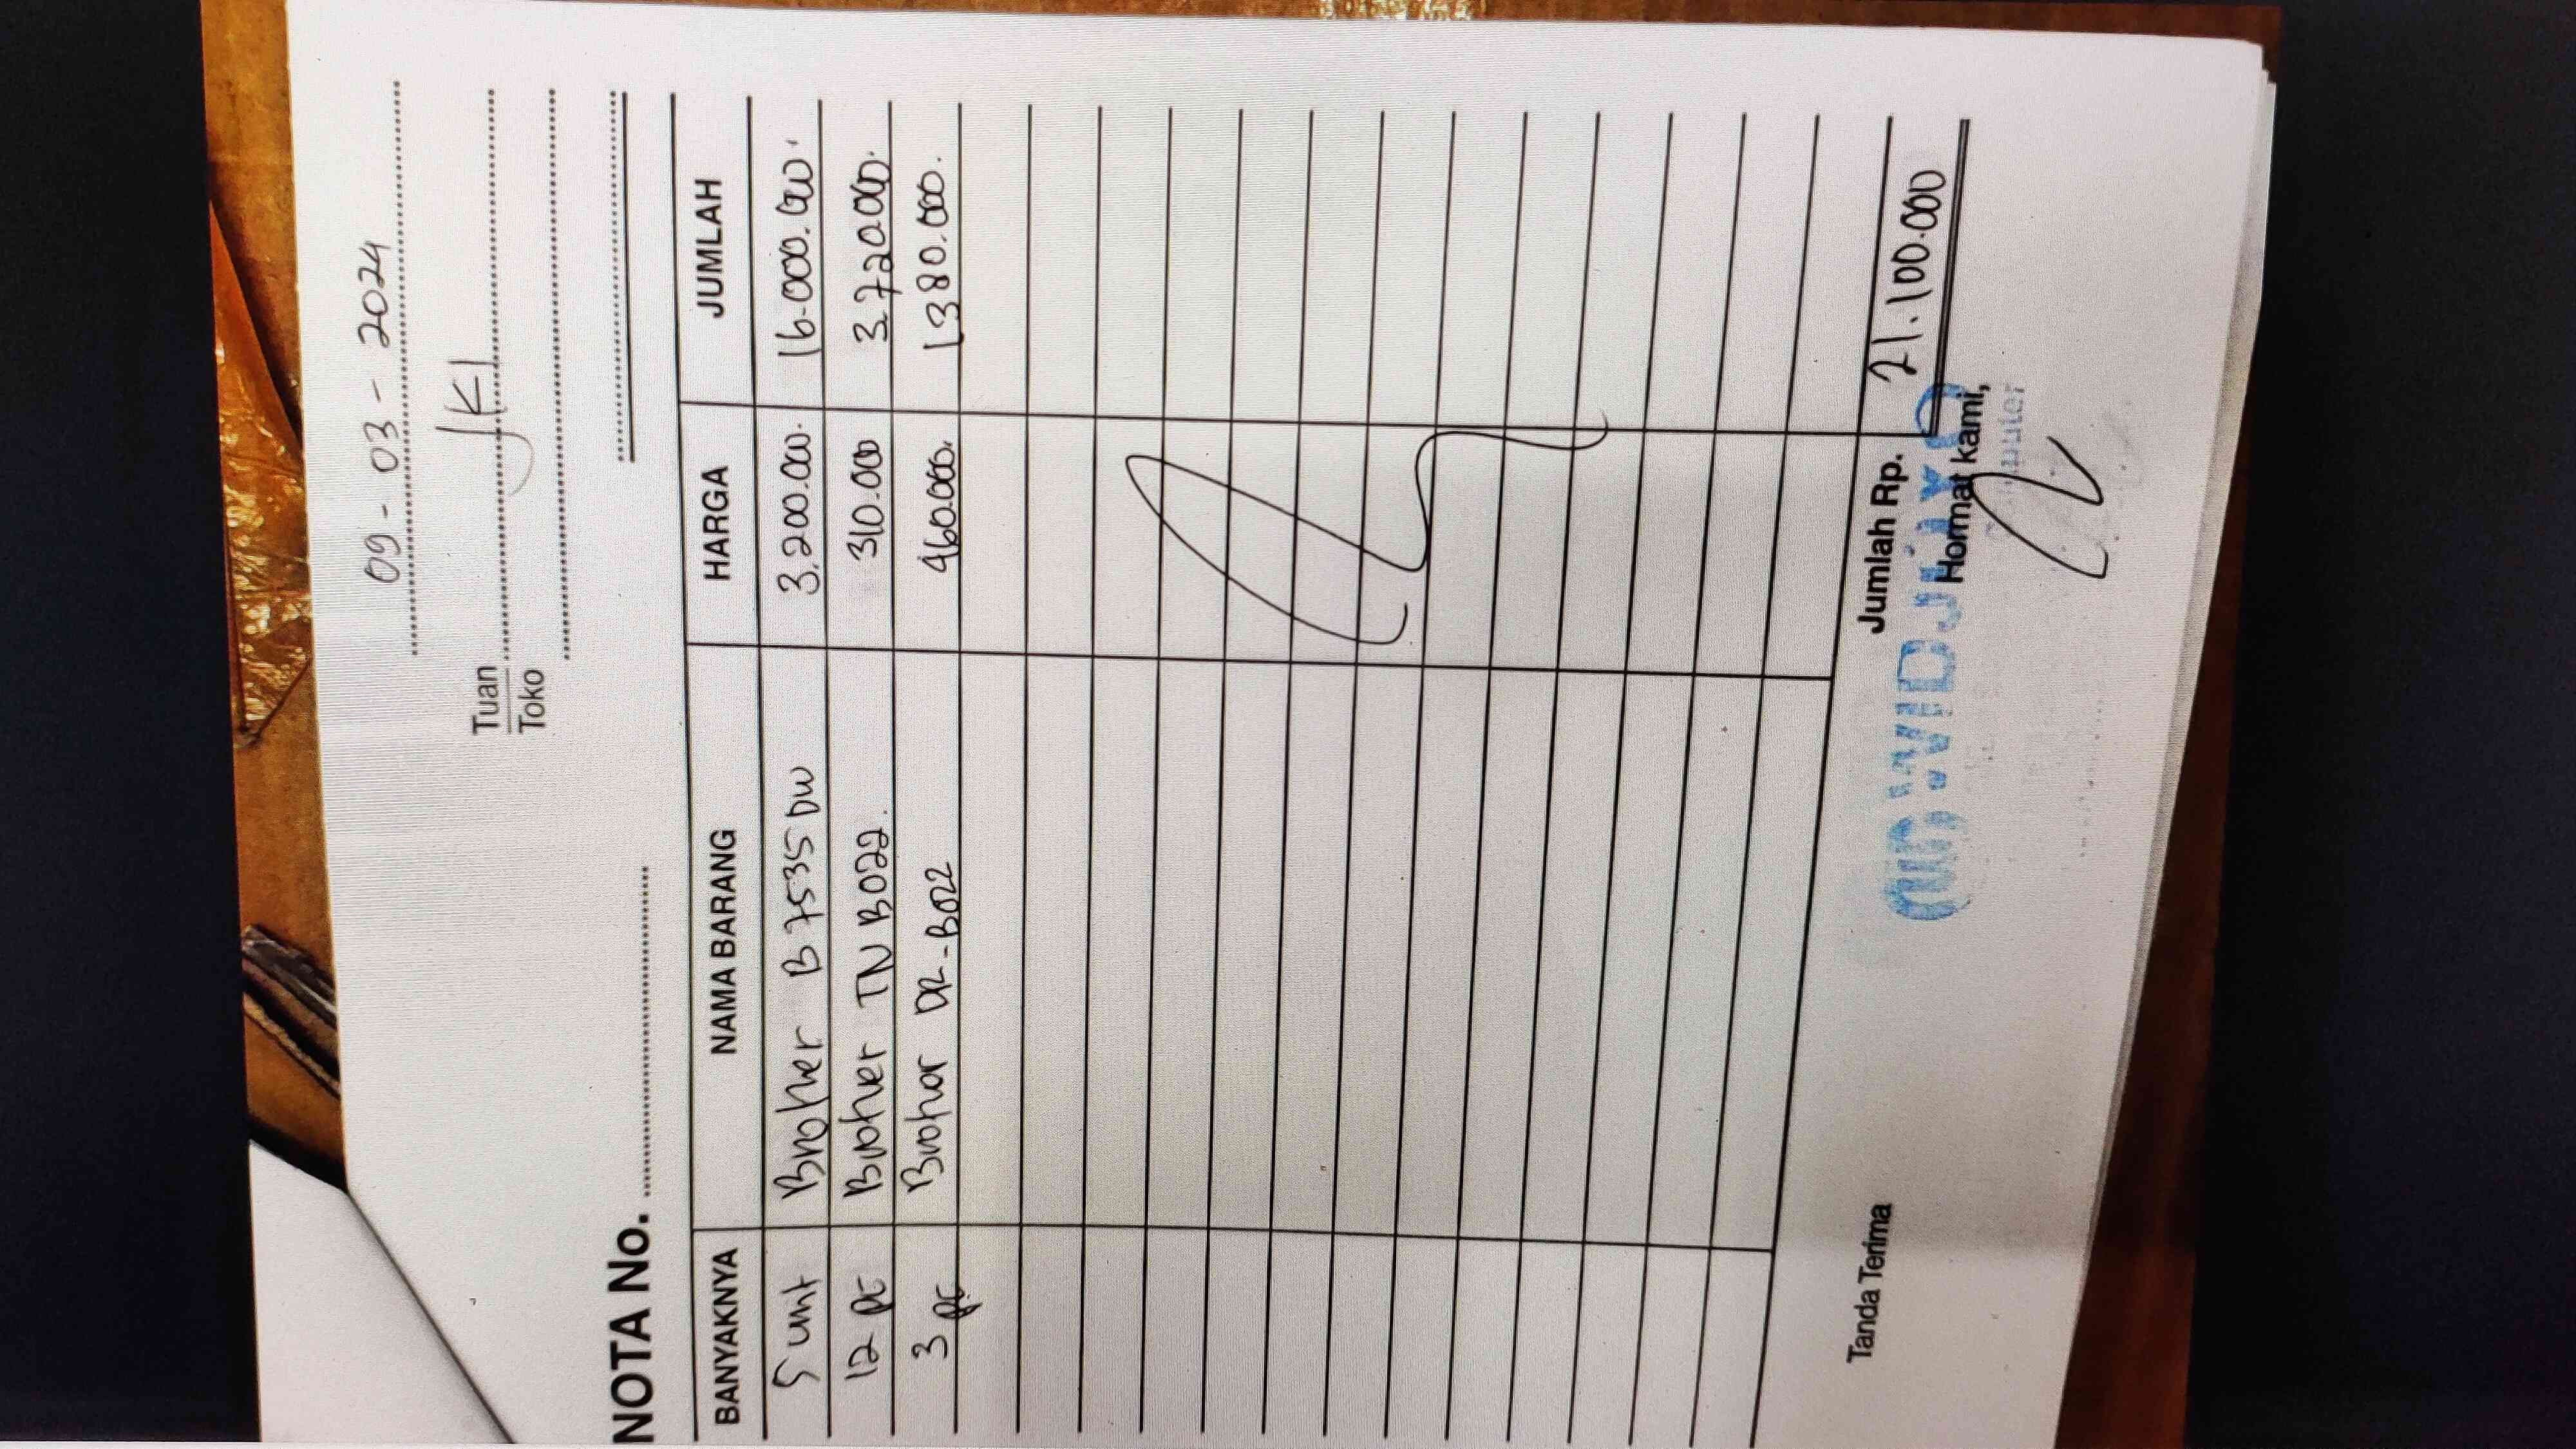 09 - 03 - 2024
Tuan JKI
Toko
NOTA No.
BANYAKNYA NAMA BARANG HARGA JUMLAH
5 unit Brother B 7535 DW 3.200.000. 16.000.000.
12 pc Brother TN B022. 310.000 3.720.000.
3 pc Brother DR-B022 460.000. 1.380.000.
Jumlah Rp. 21.100.000
Tanda Terima Hormat kami,